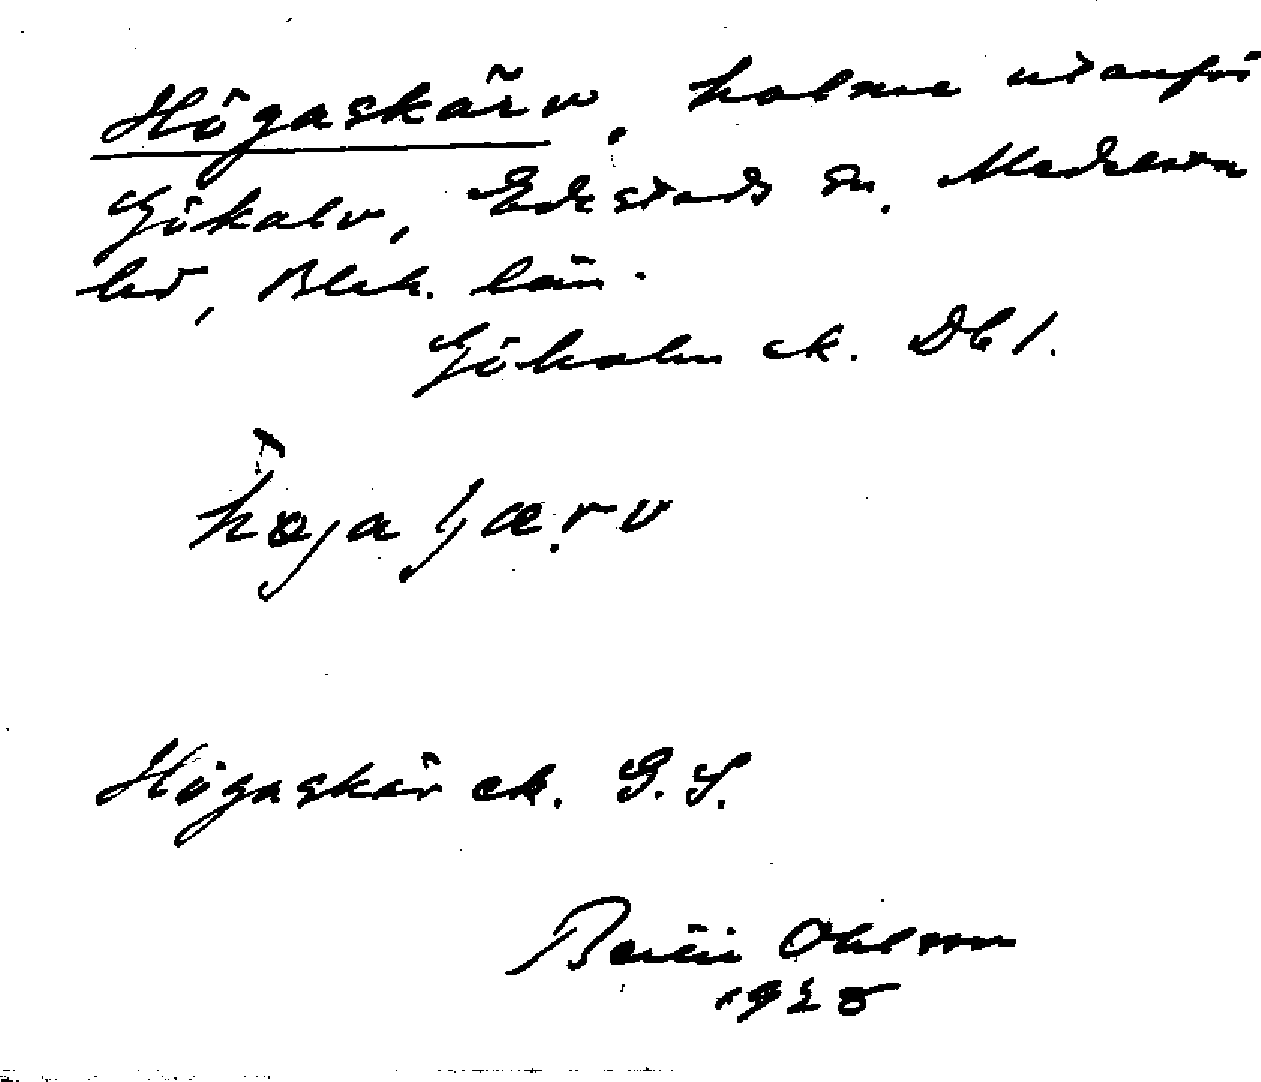 Högaskärv, holme utanför
Gökalv, Edestads sn, Medelsta
hd, Blek. län.
Gökalv ek. Db 1.
Högaskär ek. G.S.
Bertil Ohlsson
1925